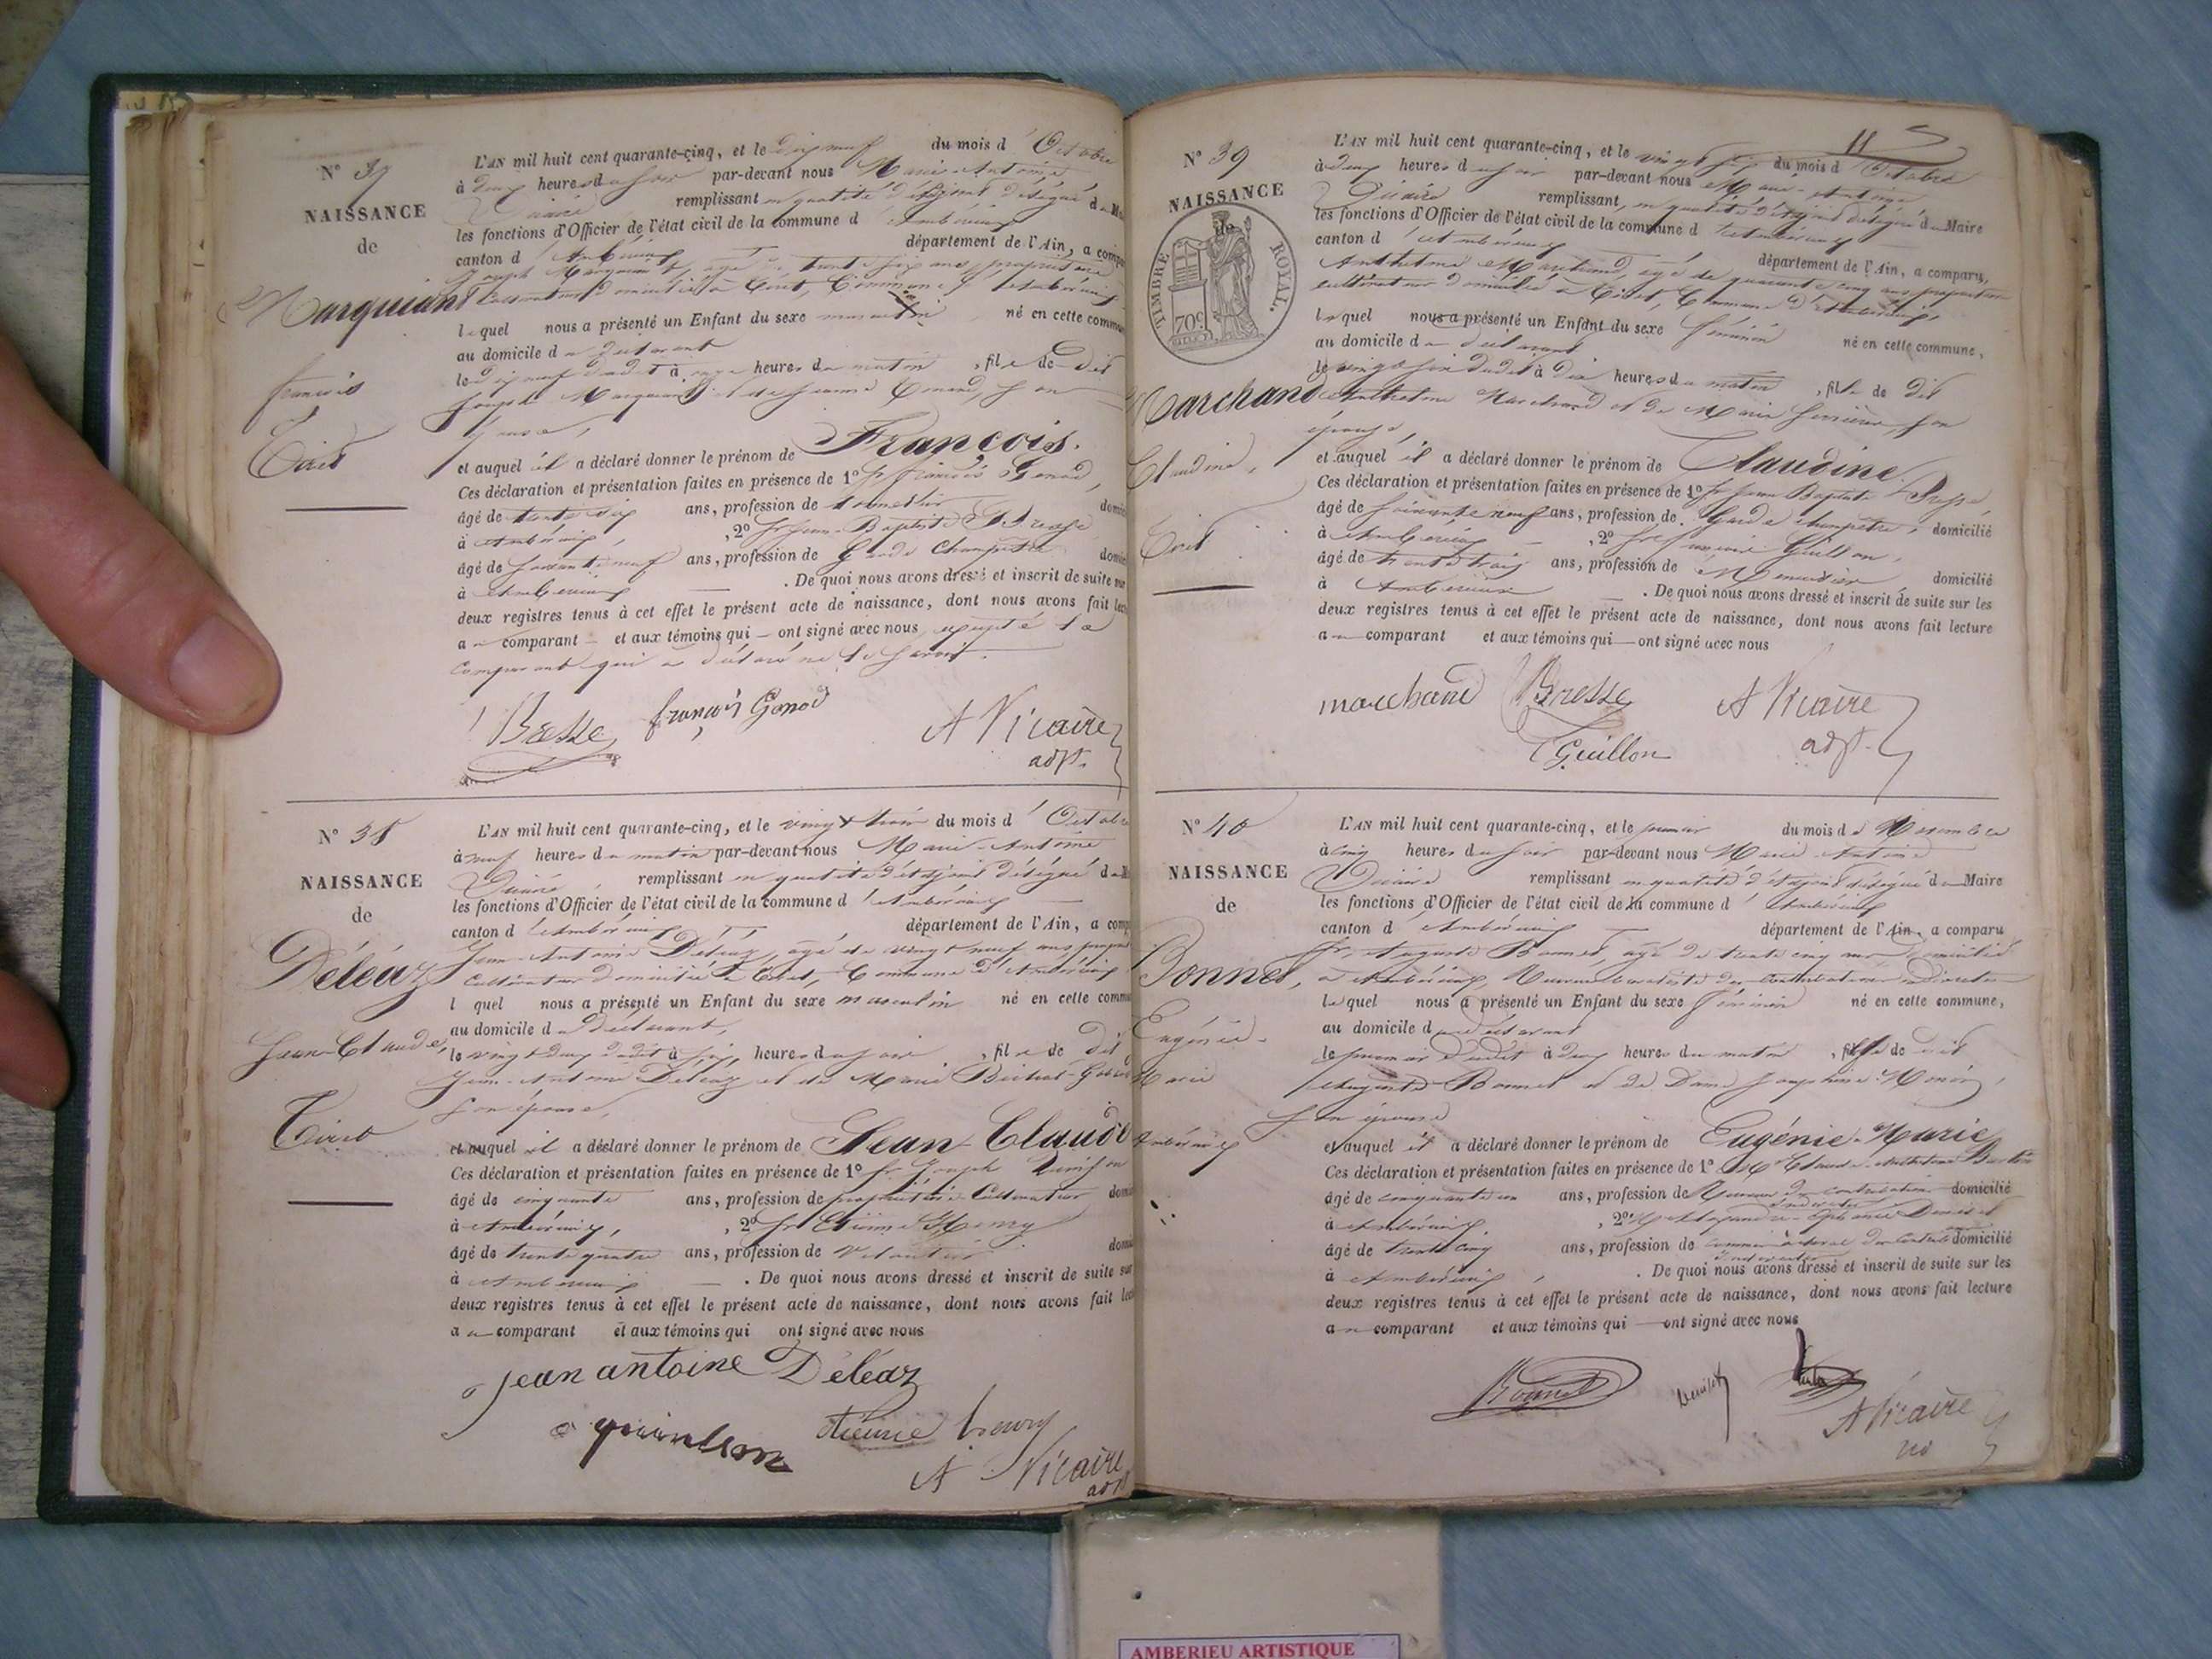 N° 37
NAISSANCE
de
Marquiant
françois
Tiret
L'AN mil huit cent quarante-cinq, et le dix neuf du mois d'Octobre
à deux heures du soir par-devant nous Marie-Antoine
Vicaire remplissant en qualité d'adjoint délégué du
les fonctions d'Officier de l'état civil de la commune d'Ambérieux
canton d'Ambérieux département de l'Ain, a comparu
Joseph Marquiant, agé de trente six ans, propriétaire
Cultivateur domicilié à Tiret, Commune d'Ambérieux
lequel nous a présenté un Enfant du sexe masculin né en cette commune
au domicile du déclarant
le dix neuf dudit à onze heures du matin, fils de dit
Joseph Marquiant et de Jeanne, son
épouse,
et auquel il a déclaré donner le prénom de François.
Ces déclaration et présentation faites en présence de 1° Sr françois Gonod,
âgé de trente six ans, profession de tonnelier
à Ambérieux, 2° Sr Jean-Baptiste Bresse
âgé de soixante neuf ans, profession de Garde Champêtre
à Ambérieux. De quoi nous avons dressé et inscrit de suite sur
deux registres tenus à cet effet le présent acte de naissance, dont nous avons fait lecture
au comparant et aux témoins qui ont signé avec nous, excepté le
comparant qui a déclaré ne le savoir.
Bresse françois Gonod A Vicaire
adjt.
N° 38
NAISSANCE
de
Déléaz
Jean-Claude,
Tiret
L'AN mil huit cent quarante-cinq, et le vingt trois du mois d'Octobre
à neuf heures du matin par-devant nous Marie-Antoine
Vicaire remplissant en qualité d'adjoint délégué du
les fonctions d'Officier de l'état civil de la commune d'Ambérieux
canton d'Ambérieux département de l'Ain, a comparu
Jean-Antoine Déléaz, agé de vingt neuf ans, propriétaire
Cultivateur domicilié à Tiret, Commune d'Ambérieux
l quel nous a présenté un Enfant du sexe masculin né en cette commune
au domicile du déclarant,
le vingt deux dudit à six heures du soir, fils de dit
Jean-Antoine Déléaz et de Marie
son épouse,
et auquel il a déclaré donner le prénom de Jean-Claude
Ces déclaration et présentation faites en présence de 1° Sr Joseph
âgé de cinquante ans, profession de propriétaire Cultivateur
à Ambérieux, 2° Sr Etienne Henry
âgé de trente quatre ans, profession de
à Ambérieux. De quoi nous avons dressé et inscrit de suite sur
deux registres tenus à cet effet le présent acte de naissance, dont nous avons fait lecture
au comparant et aux témoins qui ont signé avec nous
jean antoine Déléaz
quinson étienne henry
A Vicaire
adjt
11
N° 39
NAISSANCE
de
TIMBRE ROYAL.
70c
Marchand
Claudine,
Tiret
L'AN mil huit cent quarante-cinq, et le vingt six du mois d'Octobre
à deux heures du soir par-devant nous Marie-Antoine
Vicaire remplissant, en qualité d'adjoint délégué du Maire
les fonctions d'Officier de l'état civil de la commune d'Ambérieux
canton d'Ambérieux département de l'Ain, a comparu,
Anthelme Marchand, agé de quarante cinq ans, propriétaire
cultivateur domicilié à Tiret, Commune d'Ambérieux,
lequel nous a présenté un Enfant du sexe féminin né en cette commune,
au domicile du déclarant
le vingt six dudit à dix heures du matin, fille de dit
Anthelme Marchand et de Marie, son
épouse,
et auquel il a déclaré donner le prénom de Claudine.
Ces déclaration et présentation faites en présence de 1° Sr Jean Baptiste Bresse,
âgé de soixante neuf ans, profession de Garde champêtre, domicilié
à Ambérieux, 2° Sr Guillon,
âgé de trente trois ans, profession de Menuisier, domicilié
à Ambérieux. De quoi nous avons dressé et inscrit de suite sur les
deux registres tenus à cet effet le présent acte de naissance, dont nous avons fait lecture
au comparant et aux témoins qui ont signé avec nous
marchand Bresse A Vicaire
Guillon adjt.
N° 40
NAISSANCE
de
Bonnet,
Eugénie-
Marie
Ambérieux
L'AN mil huit cent quarante-cinq, et le premier du mois de Novembre
à cinq heures du soir par-devant nous Marie-Antoine
Vicaire remplissant en qualité d'adjoint délégué du Maire
les fonctions d'Officier de l'état civil de la commune d'Ambérieux
canton d'Ambérieux département de l'Ain, a comparu
Sr, Auguste Bonnet, agé de trente cinq ans domicilié
à Ambérieux, contributions indirectes
lequel nous a présenté un Enfant du sexe féminin né en cette commune,
au domicile du déclarant
le premier dudit à deux heures du matin, fille de dit
Auguste Bonnet et de Dame Joséphine,
son épouse
et auquel il a déclaré donner le prénom de Eugénie-Marie
Ces déclaration et présentation faites en présence de 1° M Claude-Anthelme
âgé de cinquante un ans, profession de contributions domicilié
indirectes
à Ambérieux, 2° M Alexandre
âgé de trente cinq ans, profession de domicilié
à Ambérieux, . De quoi nous avons dressé et inscrit de suite sur les
deux registres tenus à cet effet le présent acte de naissance, dont nous avons fait lecture
au comparant et aux témoins qui ont signé avec nous
Bonnet
A Vicaire
AMBERIEU ARTISTIQUE